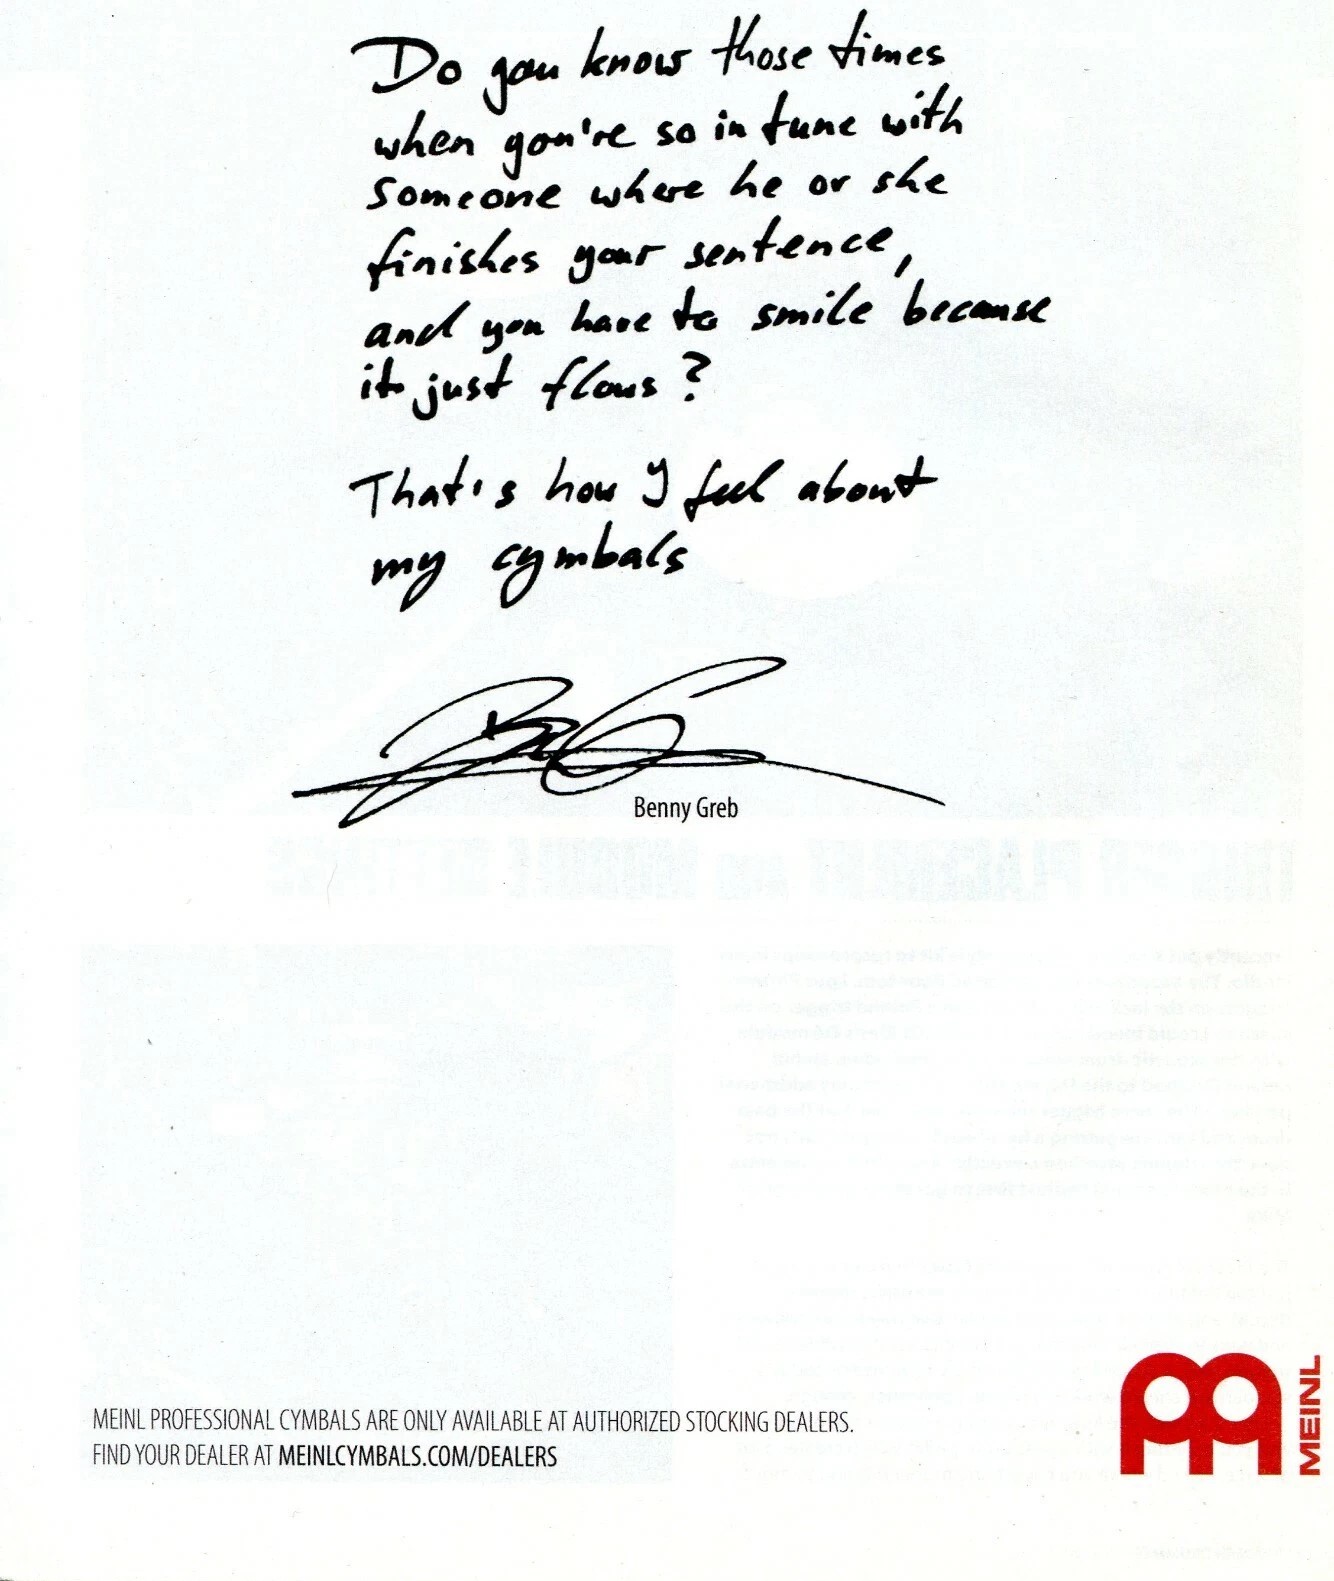 Do you know those times
when you're so in tune with
someone where he or she
finishes your sentence,
and you have to smile because
it just flows?
That's how I feel about
my cymbals
Benny Greb
MEINL PROFESSIONAL CYMBALS ARE ONLY AVAILABLE AT AUTHORIZED STOCKING DEALERS.
FIND YOUR DEALER AT MEINLCYMBALS.COM/DEALERS
MEINL